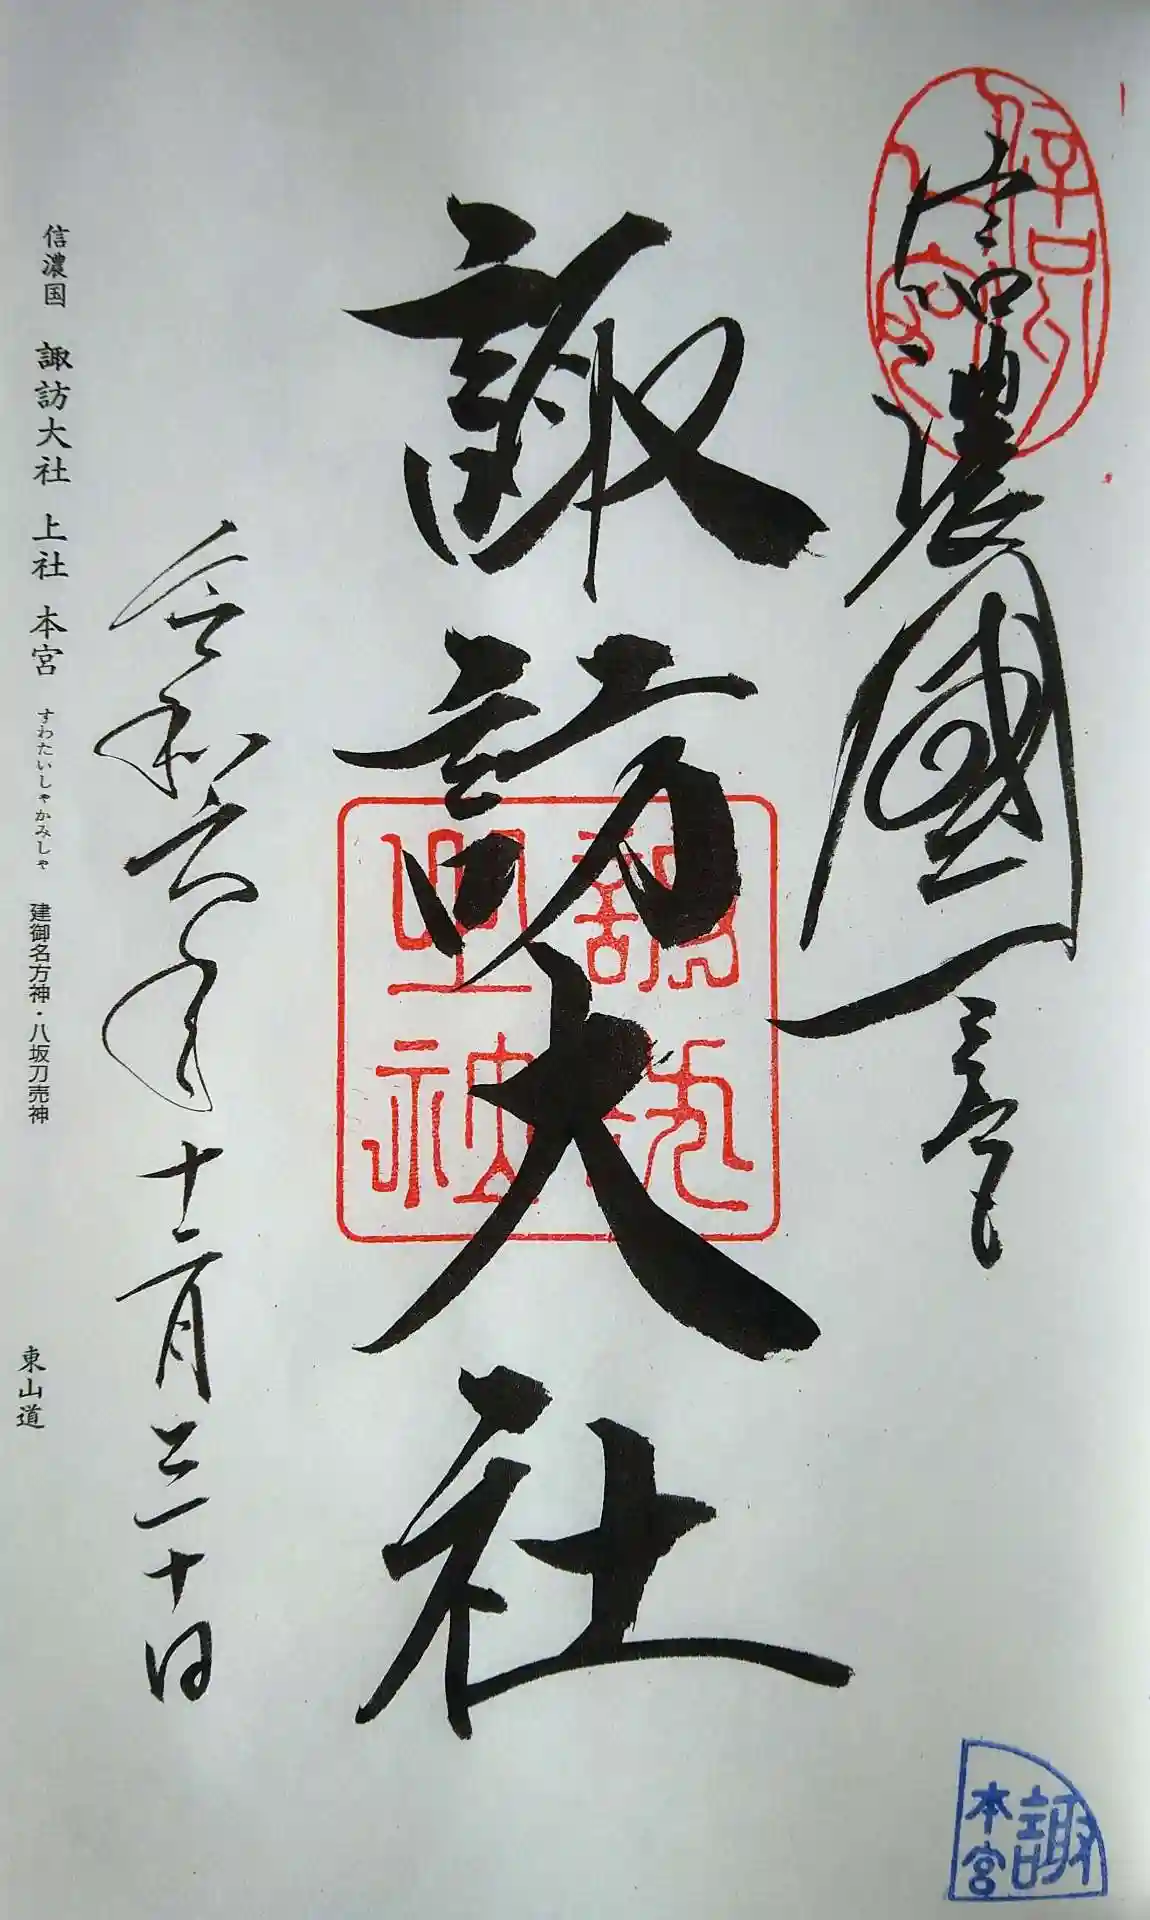 信濃國一宮
諏訪大社
令和六年十一月三十日
信濃国 諏訪大社 上社 本宮 すわたいしゃかみしゃ 建御名方神・八坂刀売神 東山道
諏
本宮